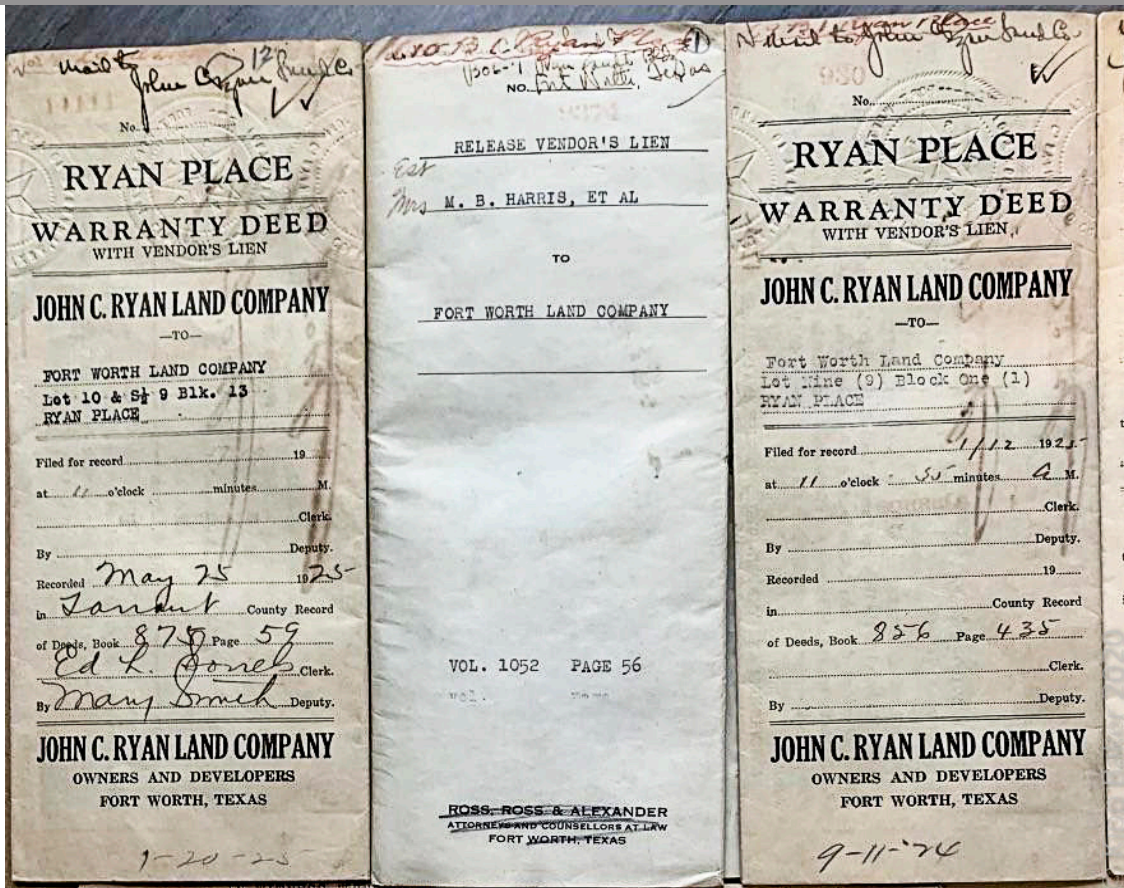 mail to
John C Ryan Land Co
No.
RYAN PLACE
WARRANTY DEED
WITH VENDOR'S LIEN
JOHN C. RYAN LAND COMPANY
—TO—
FORT WORTH LAND COMPANY
Lot 10 & S½ 9 Blk. 13
RYAN PLACE
Filed for record 19
at 11 o'clock minutes M.
Clerk.
By Deputy.
Recorded May 25 1925
in Tarrant County Record
of Deeds, Book 875 Page 59
Ed L. Jones Clerk.
By Mary Smith Deputy.
JOHN C. RYAN LAND COMPANY
OWNERS AND DEVELOPERS
FORT WORTH, TEXAS
1-20-25
Ryan Place 1
Texas
NO. Fort Worth,
RELEASE VENDOR'S LIEN
Est
Mrs M. B. HARRIS, ET AL
TO
FORT WORTH LAND COMPANY
VOL. 1052 PAGE 56
ROSS, ROSS & ALEXANDER
ATTORNEYS AND COUNSELLORS AT LAW
FORT WORTH, TEXAS
Ryan Place
Mail to John C Ryan Land Co
No.
RYAN PLACE
WARRANTY DEED
WITH VENDOR'S LIEN
JOHN C. RYAN LAND COMPANY
—TO—
Fort Worth Land Company
Lot Nine (9) Block One (1)
RYAN PLACE
Filed for record 1/12 1925
at 11 o'clock 55 minutes A M.
Clerk.
By Deputy.
Recorded 19
in County Record
of Deeds, Book 856 Page 435
Clerk.
By Deputy.
JOHN C. RYAN LAND COMPANY
OWNERS AND DEVELOPERS
FORT WORTH, TEXAS
9-11-'24